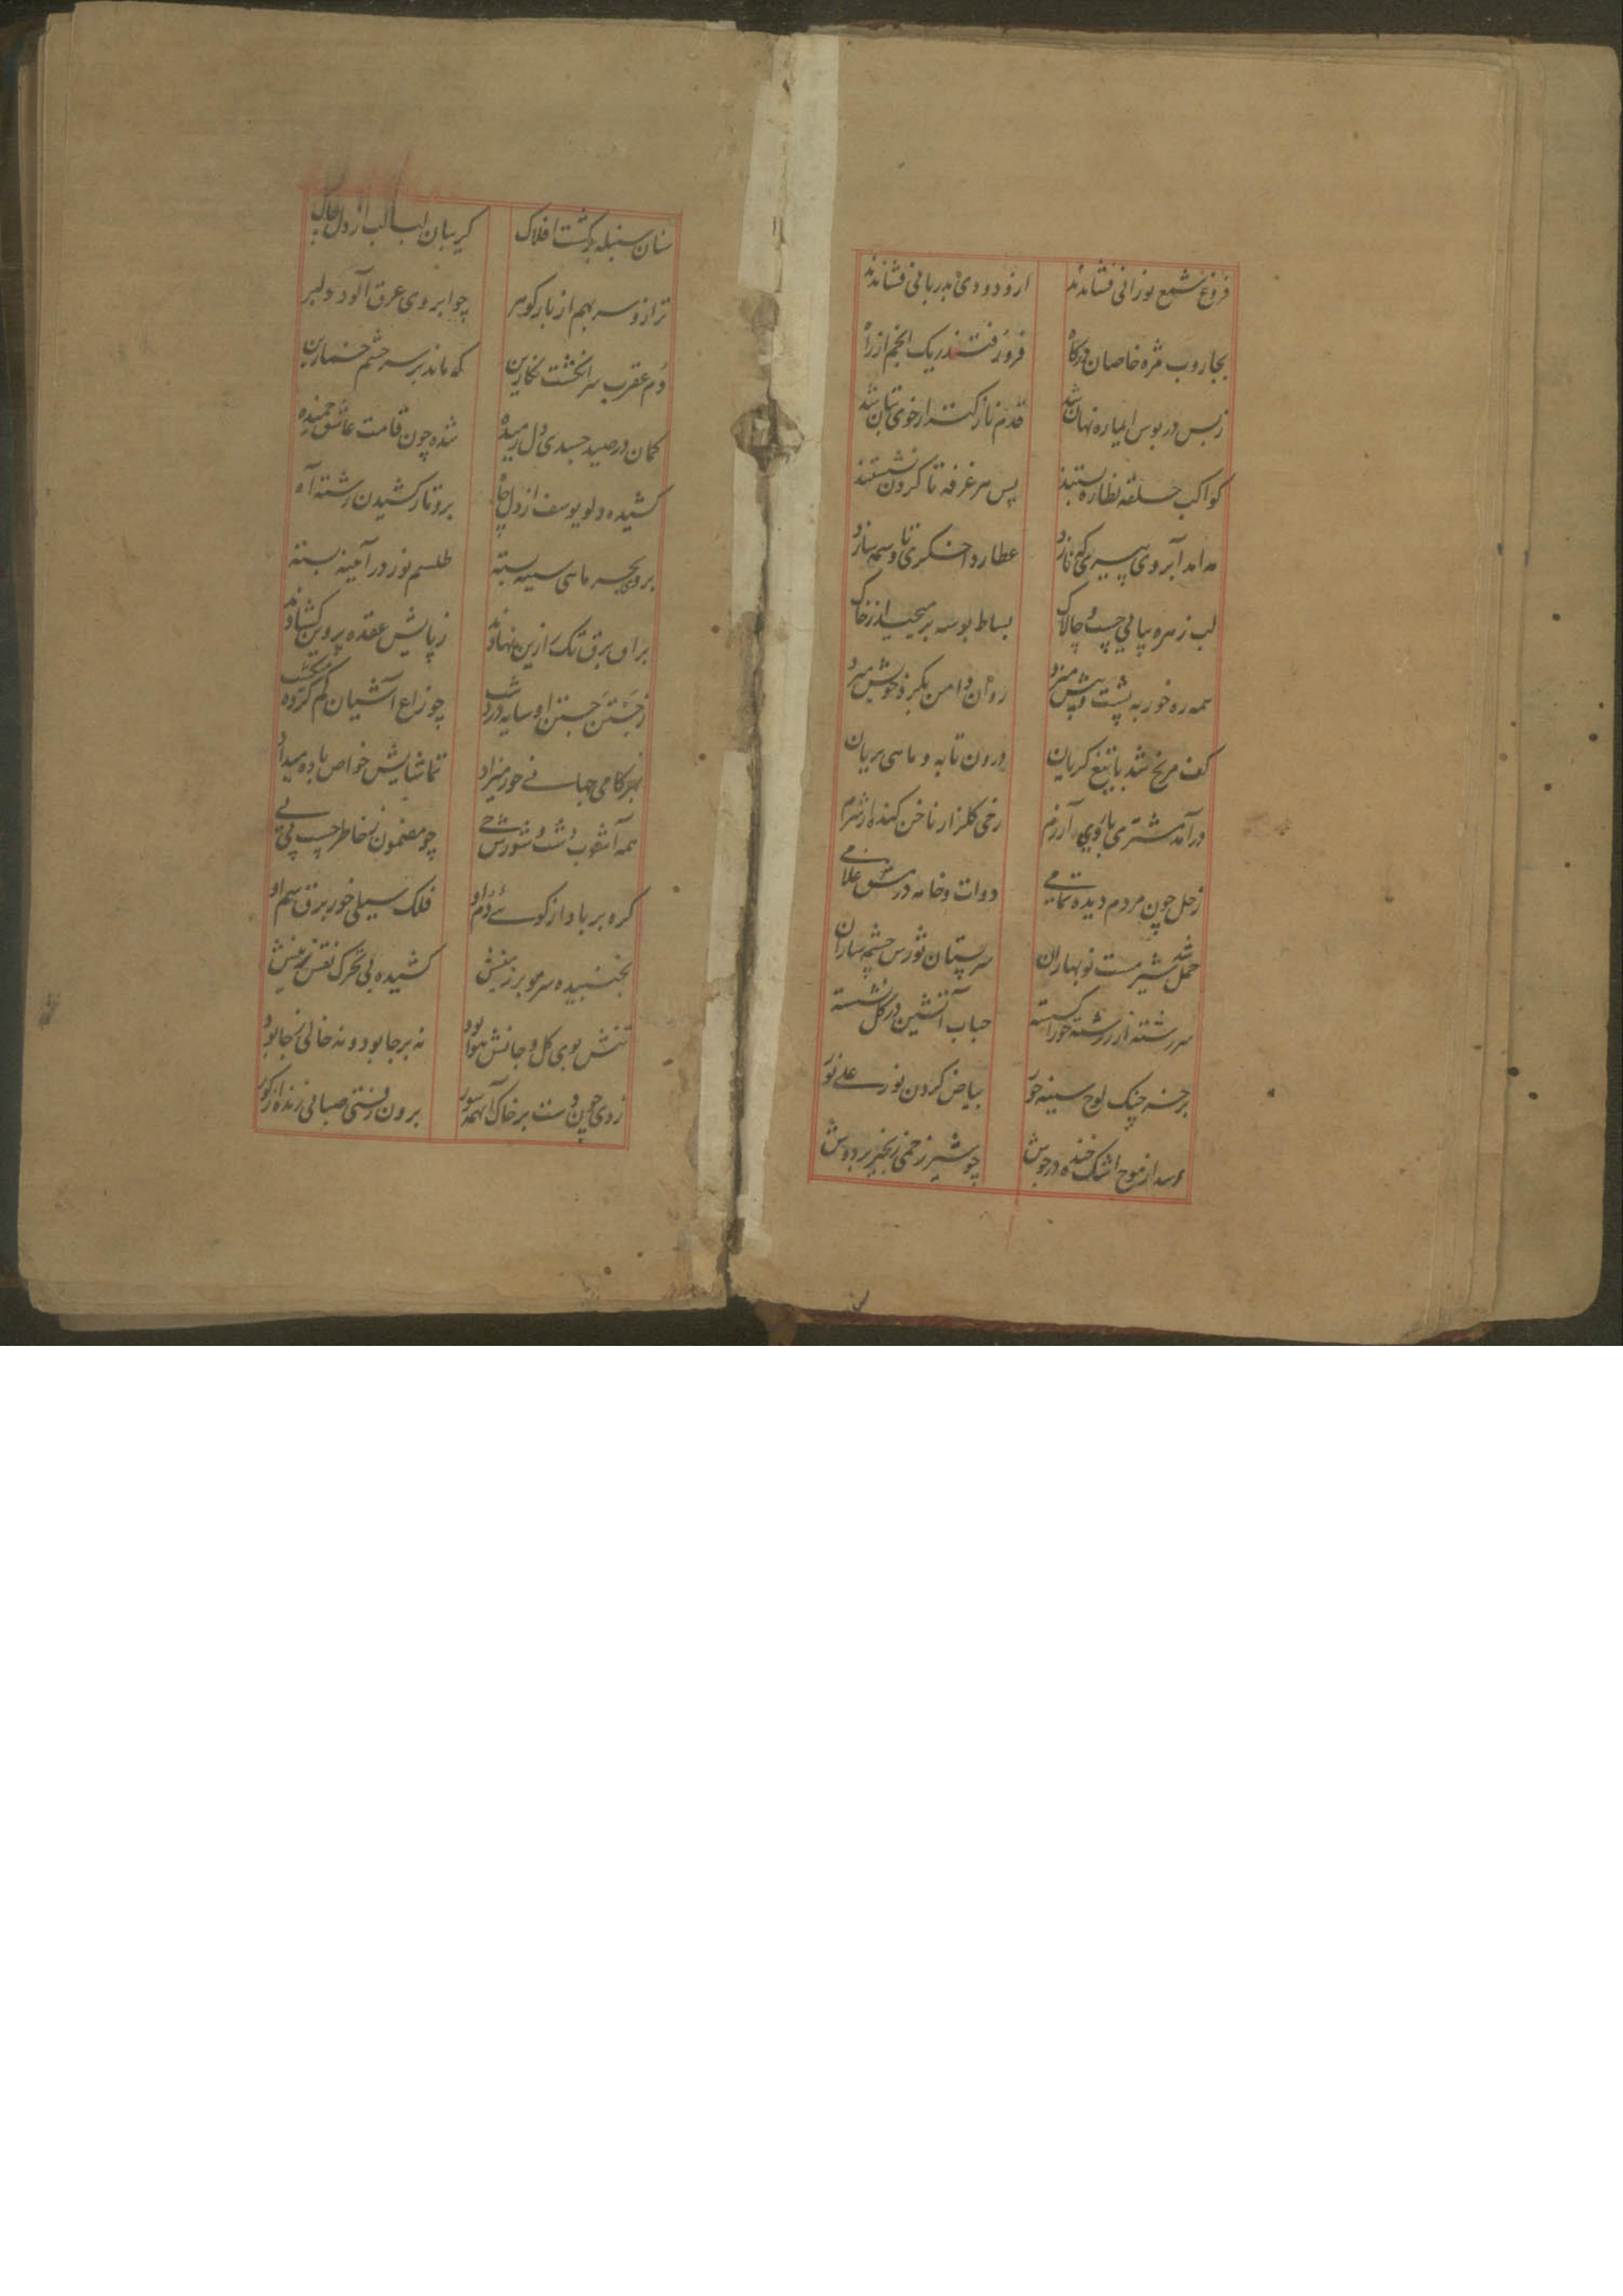 فروغ شمع نورانی فشاندند ازو دودی بدربانی فشاندند
بجاروب مژه خاصان درگاه فرو رفتند ریک انجم از راه
زبس در بوس سیاره نهان شد قدم نازکتر از خوی بتان شد
کواکب حلقه نظاره بستند پس هر غرفه تا کردن نشستند
مه آمد آبروی پیری که نازد عطارد اخکری تا وسمه سازد
لب زهره بپایی چست و چالاک بساط بوسه بر میچید از خاک
همه ره خور به پشت و پیش میزد روان دامن بکرد خویش میزد
کف مریخ شد با تیغ کریان درون تابه و ماهی بریان
درآمد مشتری با روی آزرم رخی کلزار ناخن کنده از شرم
زحل چون مردم دیده تمامی دوات و خامه در مشق غلامی
حمل شد شیرمست نوبهاران سر پستان نورس چشمه ساران
سررشته از رشته خور کسسته حباب آتشین در کل نشسته
برخنه چنک لوح سینه خور بیاض کردن نور علی نور
اسد از موج اشک خنده در جوش چو شیر زخمی زنجیر بر دوش
سنان سنبله بر کشت افلاک کریبان لبالب از دل چاک
ترازو سر بهم از بار کوهر چو ابروی عرق آلود دلبر
دم عقرب سر انکشت نکارین که ماند بر سر چشم خمارین
کمان در صید جسدی دل رمیده شده چون قامت عاشق خمیده
کشیده دلو یوسف از دل چاه برو تار کشیدن رشته آه
بروی بحر ماهی سینه بسته طلسم نور در آیینه بسته
براق برق تک را زین نهادند زپایش عقده پروین کشادند
زجستن جستن او سایه در دشت چو زاغ آشیان کم کرده میکشت
بهر کامی جهانی حور میزاد تماشایش خواص باده میداد
همه آشوب و شور شوخی چو مضمون بخاطر چسپ پی نی
کره بر باد از کوی دم او فلک سیلی خور برق سم او
نجنبیده سر مو بر زمینش کشیده بی تحرک نقش زینش
تنش بوی کل و جانش هوا بود نه بر جا بود و نه خالی ز جا بود
زدی چون دست بر خاک آهمه سور برون رفتی صبائی زنده از کور